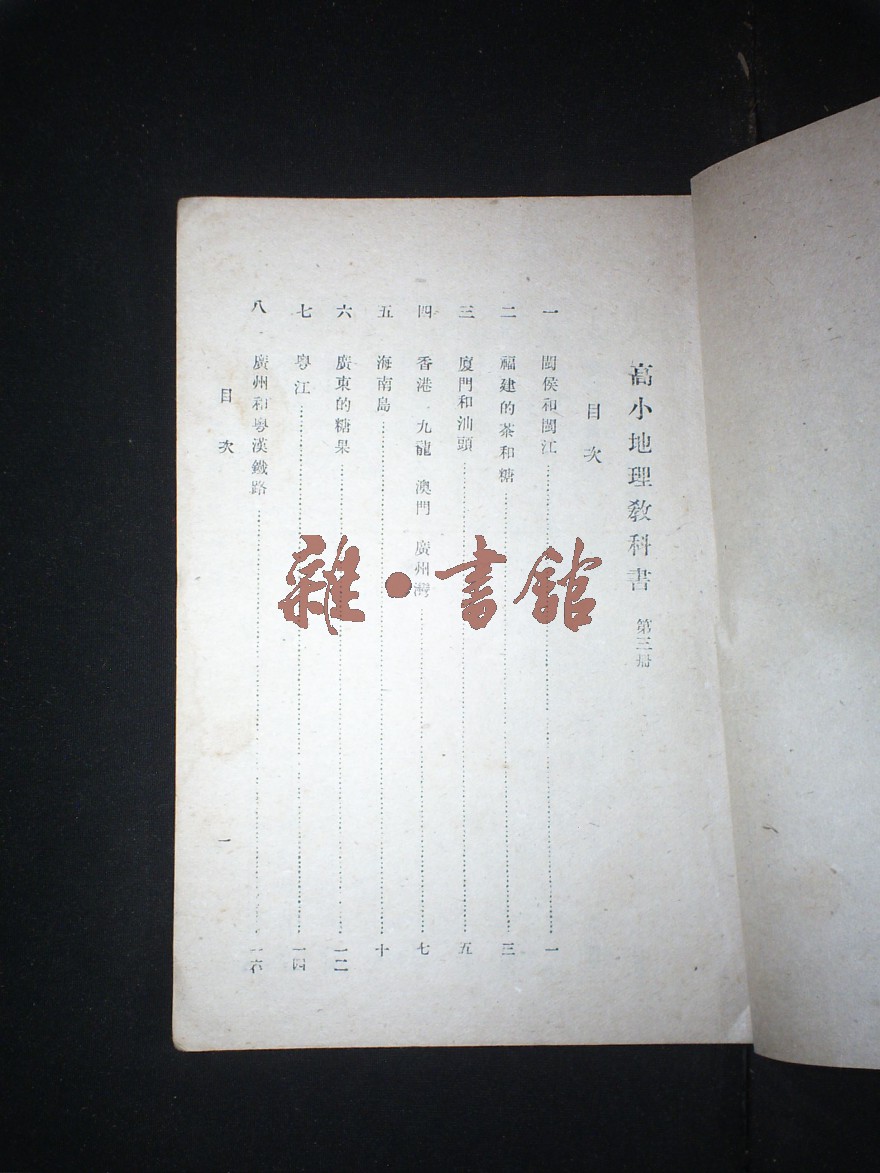 高小地理教科書 第三册
目次
一 閩侯和閩江 一
二 福建的茶和糖 三
三 廈門和汕頭 五
四 香港 九龍 澳門 廣州灣 七
五 海南島 十
六 廣東的糖果 一二
七 粤江 一四
八 廣州和粤漢鐵路 一六
目次 一
雜·書館